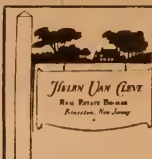 HELEN VAN CLEVE
REAL ESTATE BROKER
Princeton, New Jersey